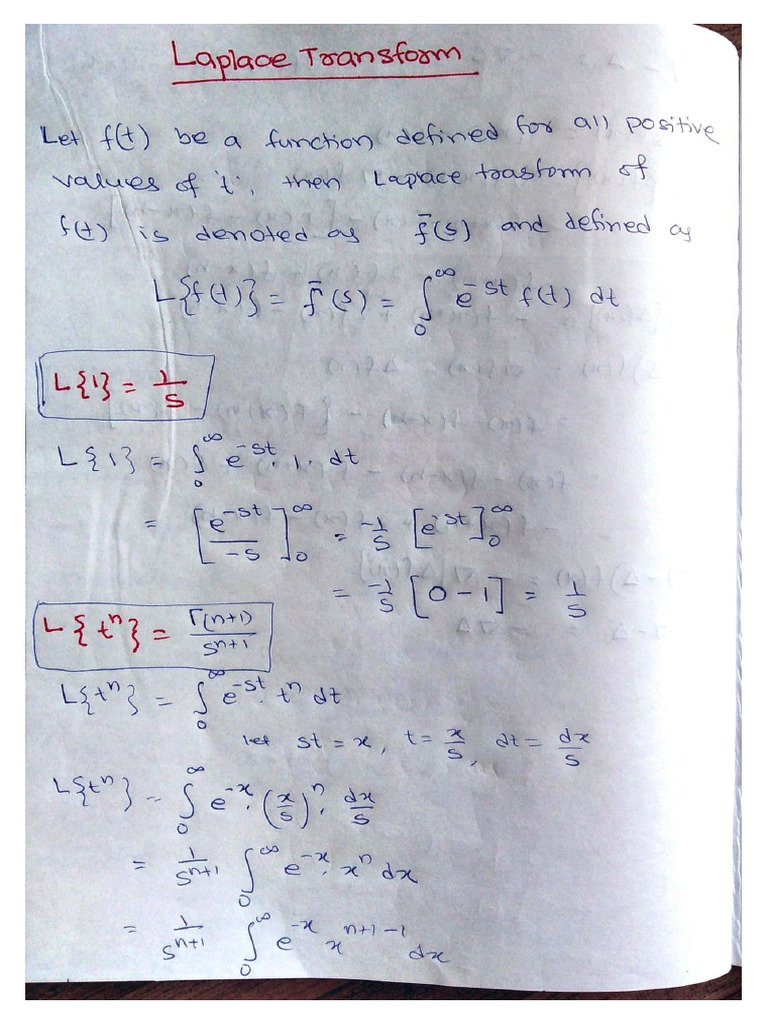 Laplace Transform
Let f(t) be a function defined for all positive
values of 't', then Laplace trasform of
f(t) is denoted as f̄(s) and defined as
L{f(t)} = f̄(s) = ∫₀^∞ e^{-st} f(t) dt
L{1} = 1/s
L{1} = ∫₀^∞ e^{-st} · 1 · dt
= [e^{-st}/-s]₀^∞ = -1/s [e^{-st}]₀^∞
= -1/s [0 - 1] = 1/s
L{t^n} = Γ(n+1)/s^{n+1}
L{t^n} = ∫₀^∞ e^{-st} · t^n dt
let st = x, t = x/s, dt = dx/s
L{t^n} = ∫₀^∞ e^{-x} · (x/s)^n · dx/s
= 1/s^{n+1} ∫₀^∞ e^{-x} · x^n dx
= 1/s^{n+1} ∫₀^∞ e^{-x} x^{n+1-1} dx